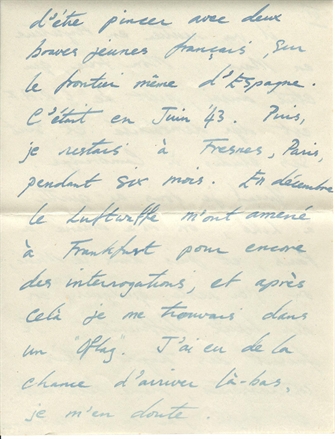 d'être pincer avec deux
braves jeunes français, sur
le frontier même d'Espagne.
C'était en Juin '43. Puis,
je restais à Fresnes, Paris,
pendant six mois. En décembre
le Luftwaffe m'ont amené
à Frankfurt pour encore
des interrogations, et après
celà je me trouvais dans
un "Oflag". J'ai eu de la
chance d'arriver là-bas,
je m'en doute.